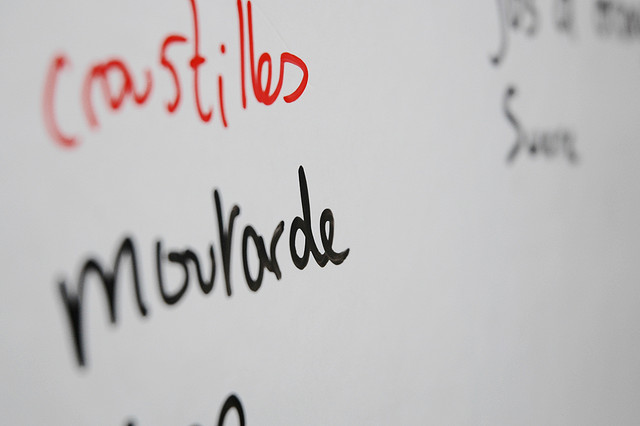 croustilles
moutarde
jus à
Sucre